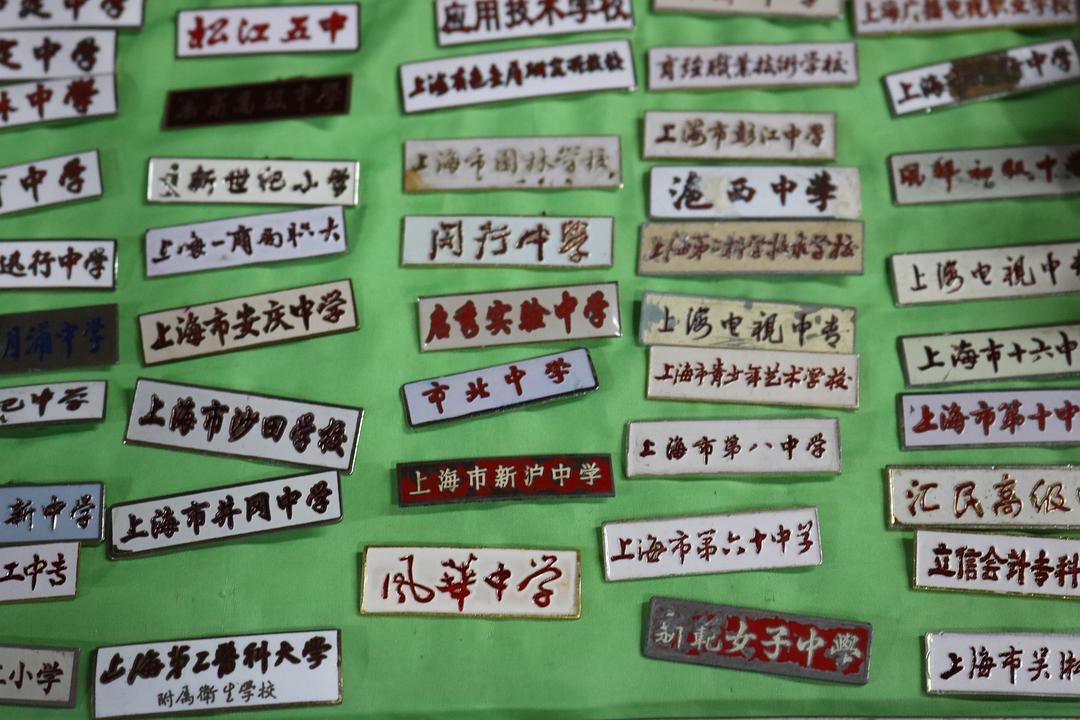 中学
松江五中
中学
新世纪小学
中学
上海一商局职大
迅行中学
上海市安庆中学
月浦中学
上海市沙田学校
中学
上海市井冈中学
新中学
工中专
小学
上海第二醫科大學
附属衛生学校
应用技术学校
上海市園林学校
闵行中學
启秀实验中学
市北中学
上海市新沪中学
風華中学
育強職業技術学校
上海市彭江中学
滬西中学
上海电视中专
上海市青少年艺术学校
上海市第八中学
上海市第六十中学
女子中學
上海广播电视职业学校
上海
中学
初級中
上海电視中
上海市十六中
上海市第十中
汇民高级
立信会计专科
上海市吴淞